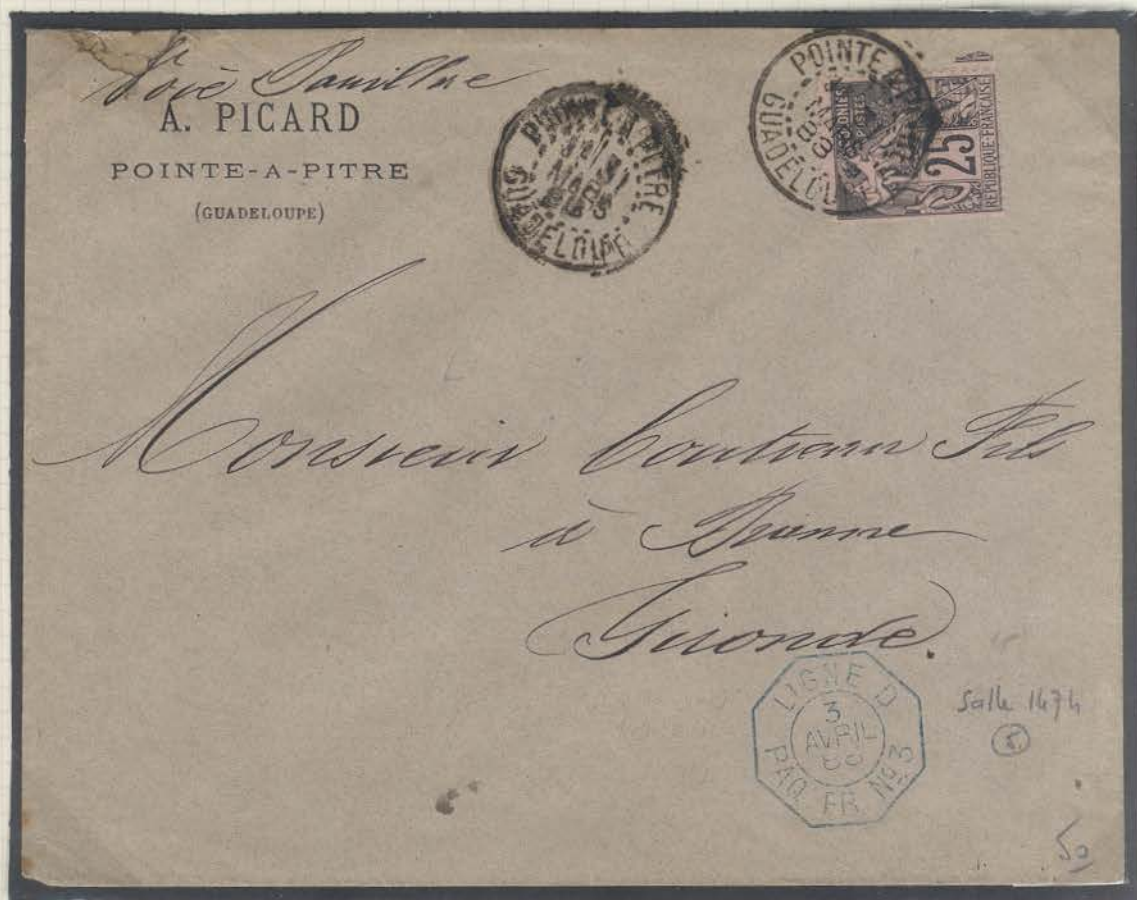 Voie Pauillac
A. PICARD
POINTE-A-PITRE
(GUADELOUPE)
POINTE A PITRE
GUADELOUPE
POINTE A PITRE
GUADELOUPE
COLONIES
POSTES
25
REPUBLIQUE FRANCAISE
Monsieur Fils
à
Gironde.
LIGNE D
3
AVRIL
PAQ. FR. Nº 3
Salle 1474
5
50